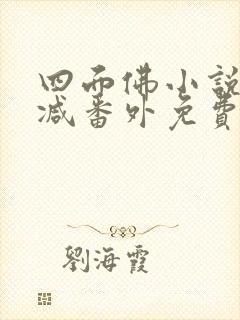 四面佛小說
減番外免費
劉海霞